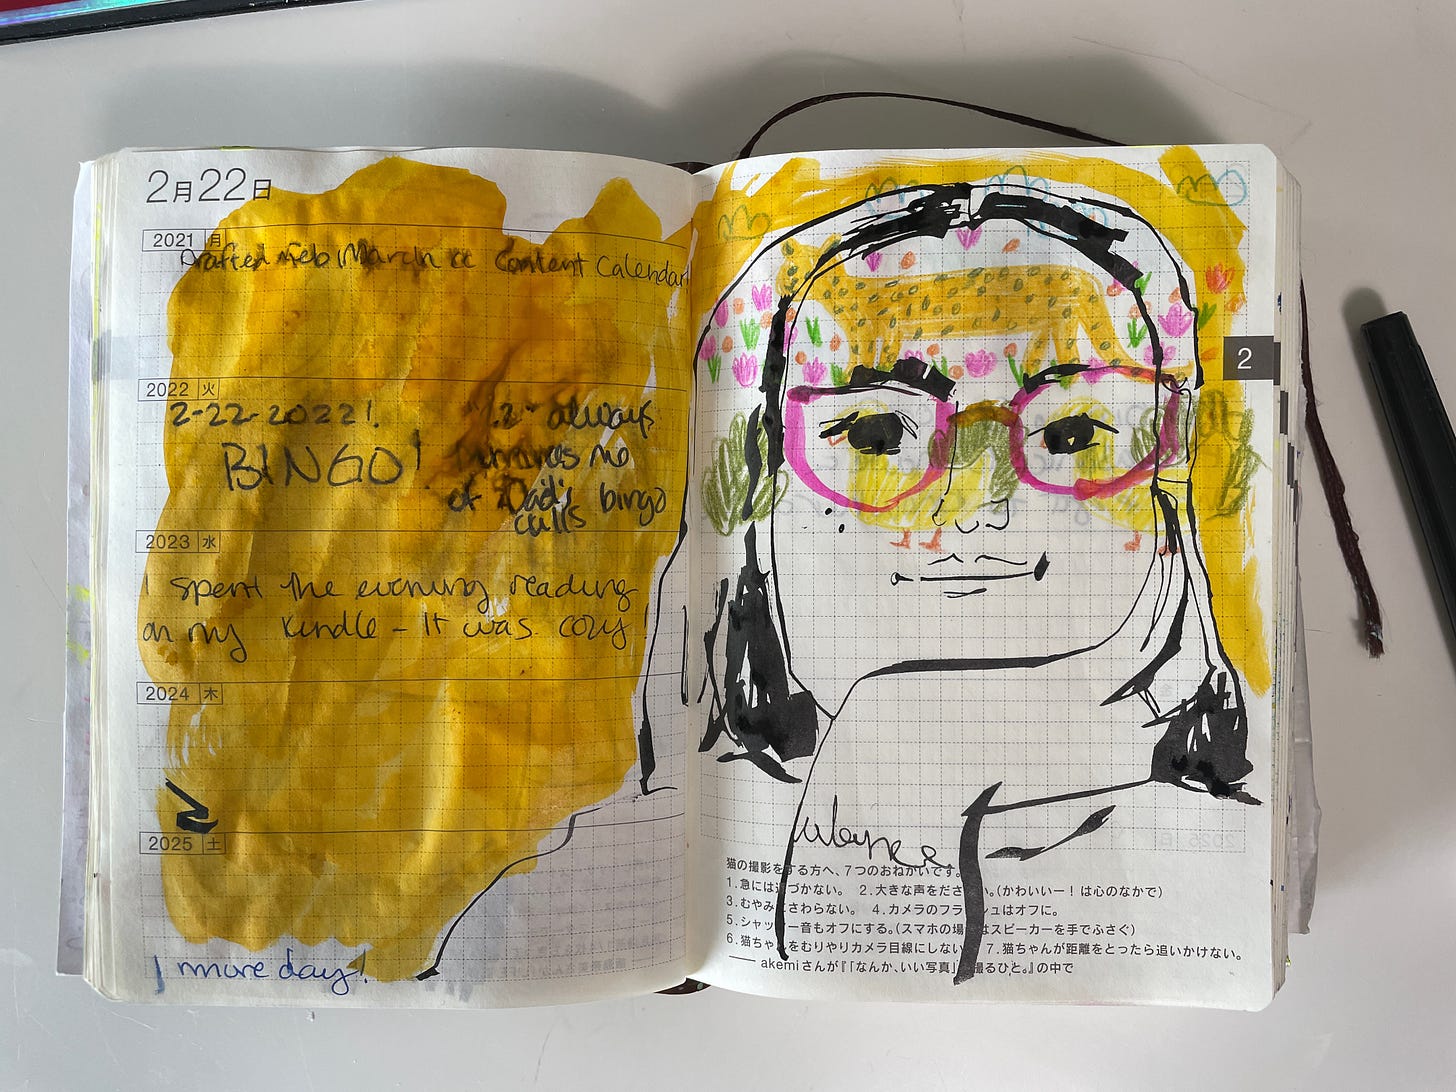 2月22日
2021 月
Drafted Feb/March cc Content Calendar
2022 火
2-22-2022!
BINGO!
22 - always
reminds me
of Dad's bingo
calls
2023 水
I spent the evening reading
on my Kindle - It was cozy
2024 木
2025 土
1 more day!
2
猫の撮影をする方へ、7つのおねがいです。
1.急には近づかない。 2.大きな声をださない。(かわいいー! は心のなかで)
3.むやみにさわらない。 4.カメラのフラッシュはオフに。
5.シャッター音もオフにする。(スマホの場合はスピーカーを手でふさぐ)
6.猫ちゃんをむりやりカメラ目線にしない。 7.猫ちゃんが距離をとったら追いかけない。
—— akemiさんが『「なんか、いい写真」を撮るひと。』の中で